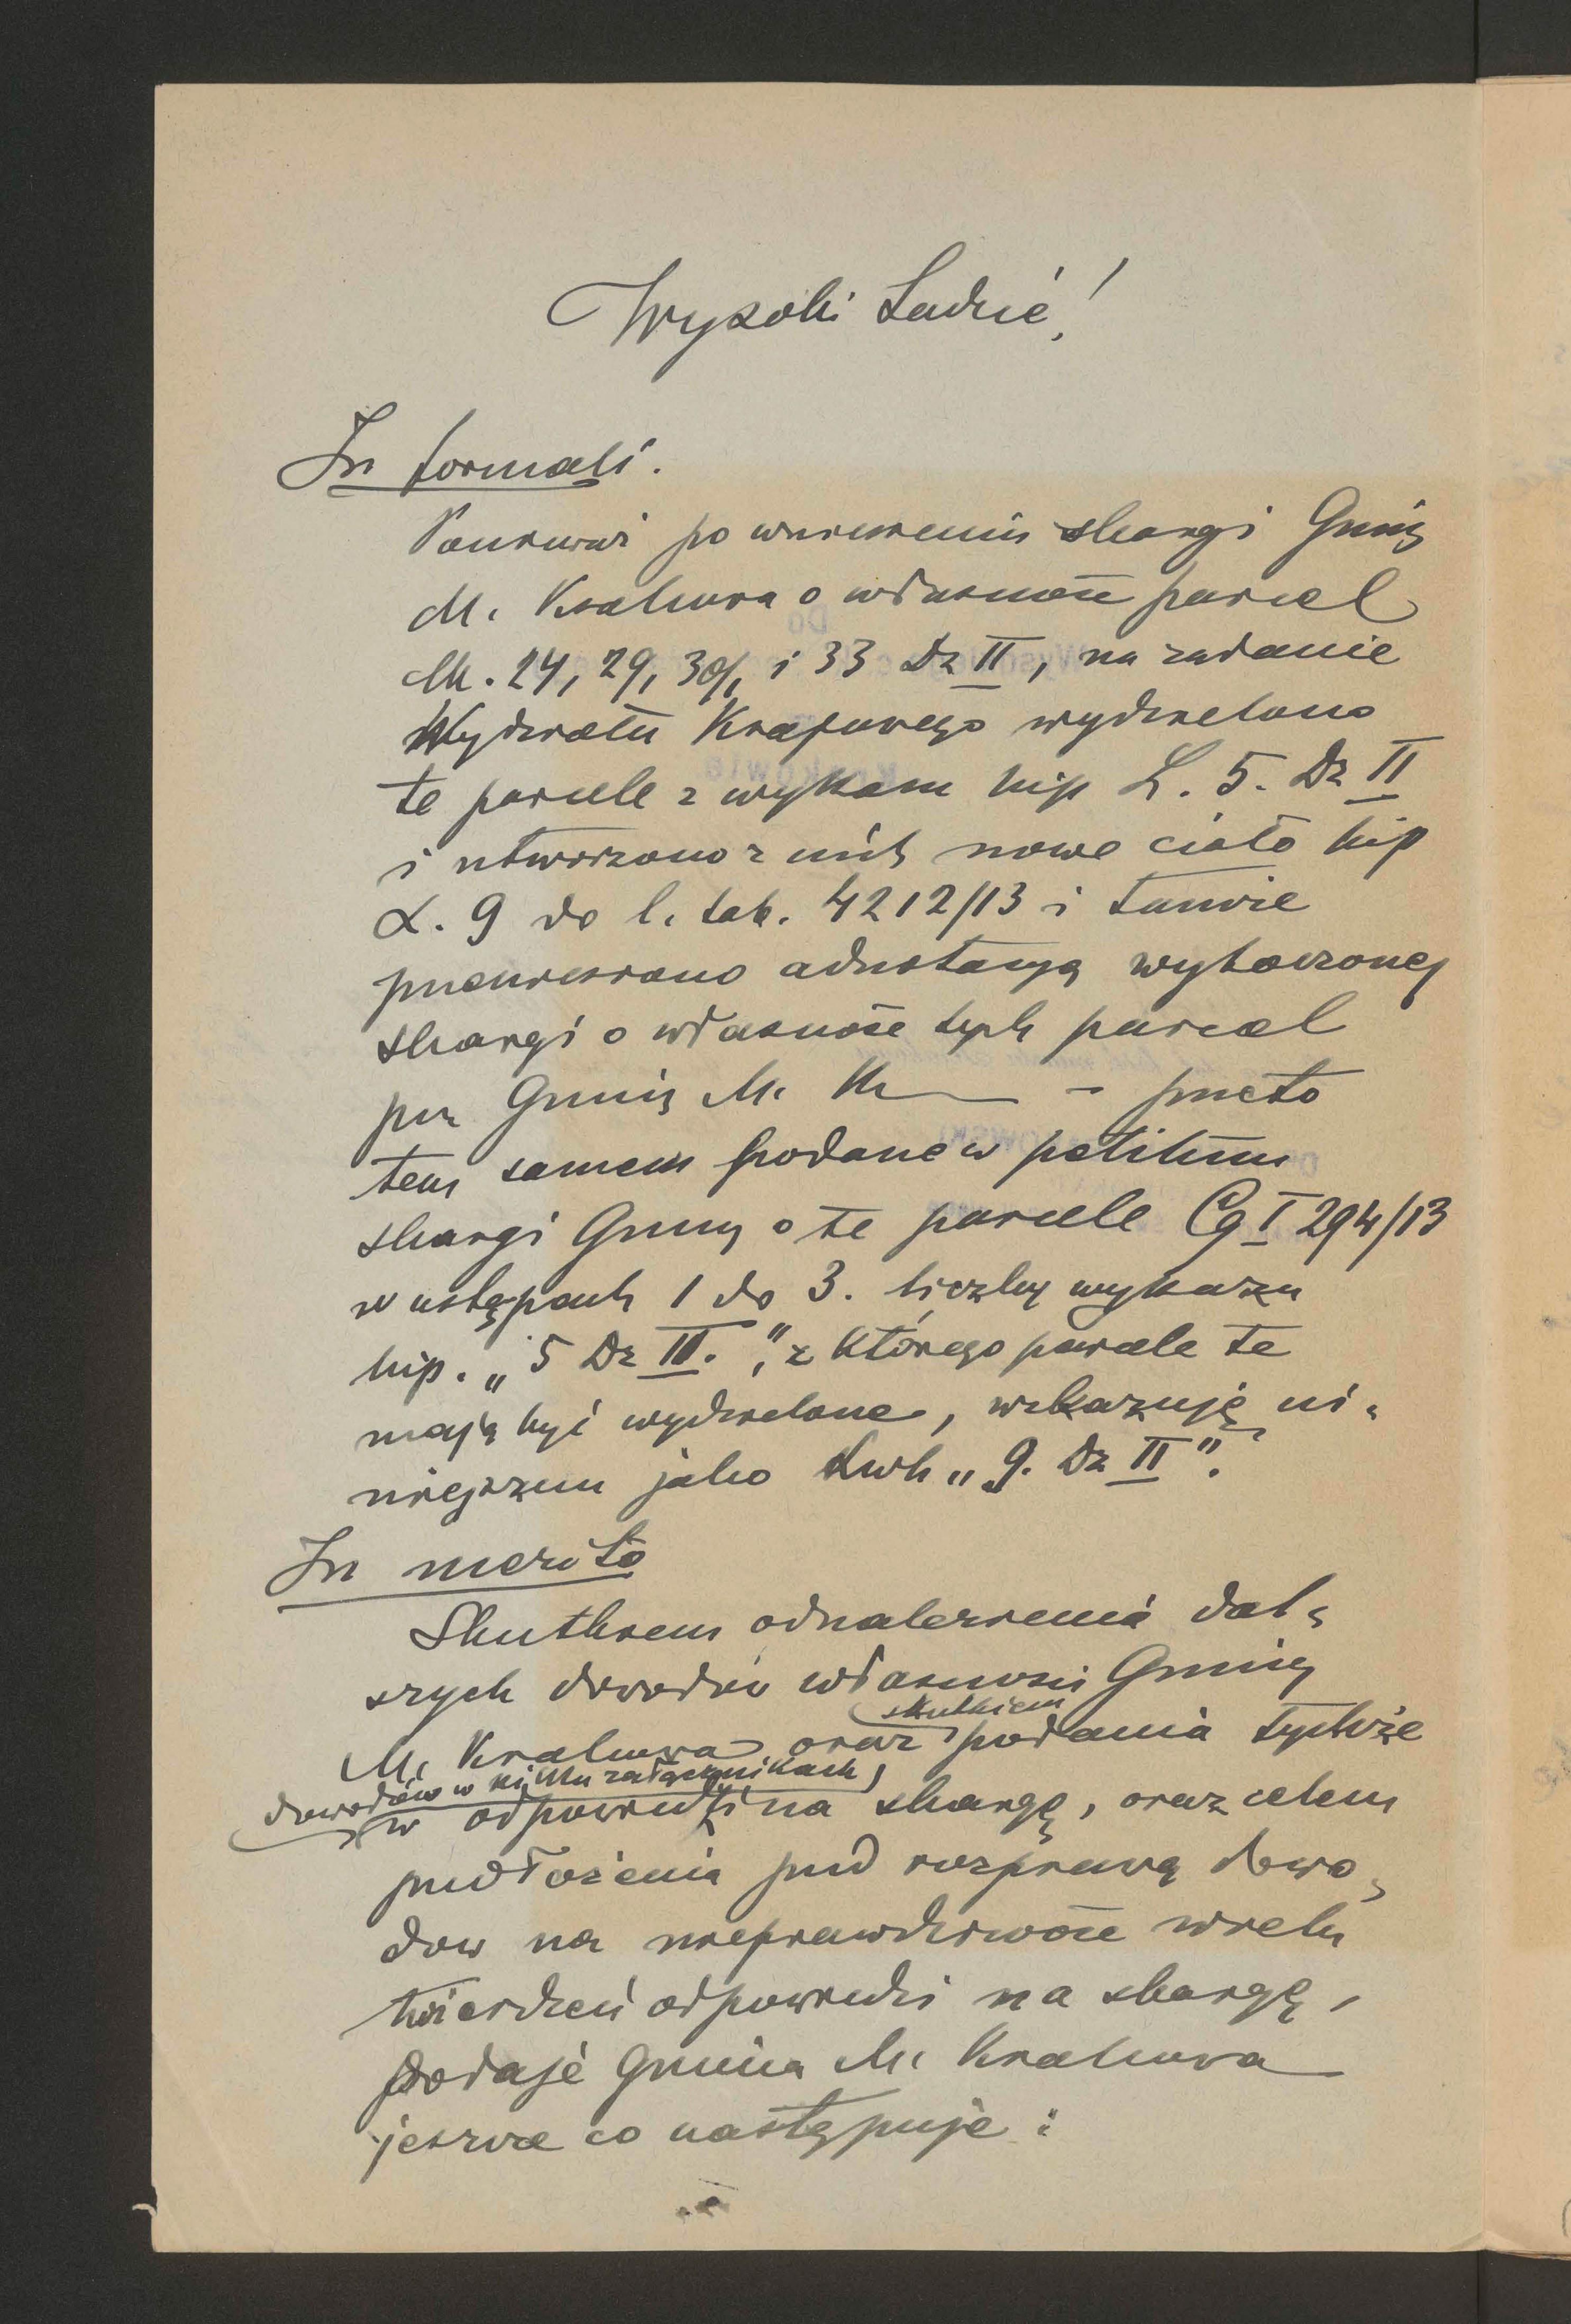 Wysoki Sądzie!
In formali.
Ponieważ po wniesieniu skargi Gminy
M. Krakowa o własność parcel
lk. 24, 29, 30/1 i 33 Dz II, na żądanie
Wydziału Krajowego wydzielono
te parcele z wykazu hip L. 5. Dz II
i utworzono z nich nowe ciało hip
L. 9 do l. tab. 4212/13 i tamże
przeniesiono adnotacyą wytoczonej
skargi o własność tych parcel
prz Gminę M. Kr — przeto
tem samem podane w petitum
skargi Gminy o te parcele Cg I 294/13
w ustępach 1 do 3. liczbę wykazu
hip. „5 Dz II.", z którego parcele te
mają być wydzielone, wskazuję ni-
niejszem jako Lwh „9. Dz II".
In merito
Skutkiem odnalezienia dal-
szych dowodów własności Gminy
skutkiem
M. Krakowa, oraz podania tychże
dowodów w kilku załącznikach,
w odpowiedzi na skargę, oraz celem
przedłożenia przed rozprawą dowo-
dów na nieprawdziwość wielu
twierdzeń odpowiedzi na skargę,
podaje Gmina M. Krakowa
jeszcze co następuje: